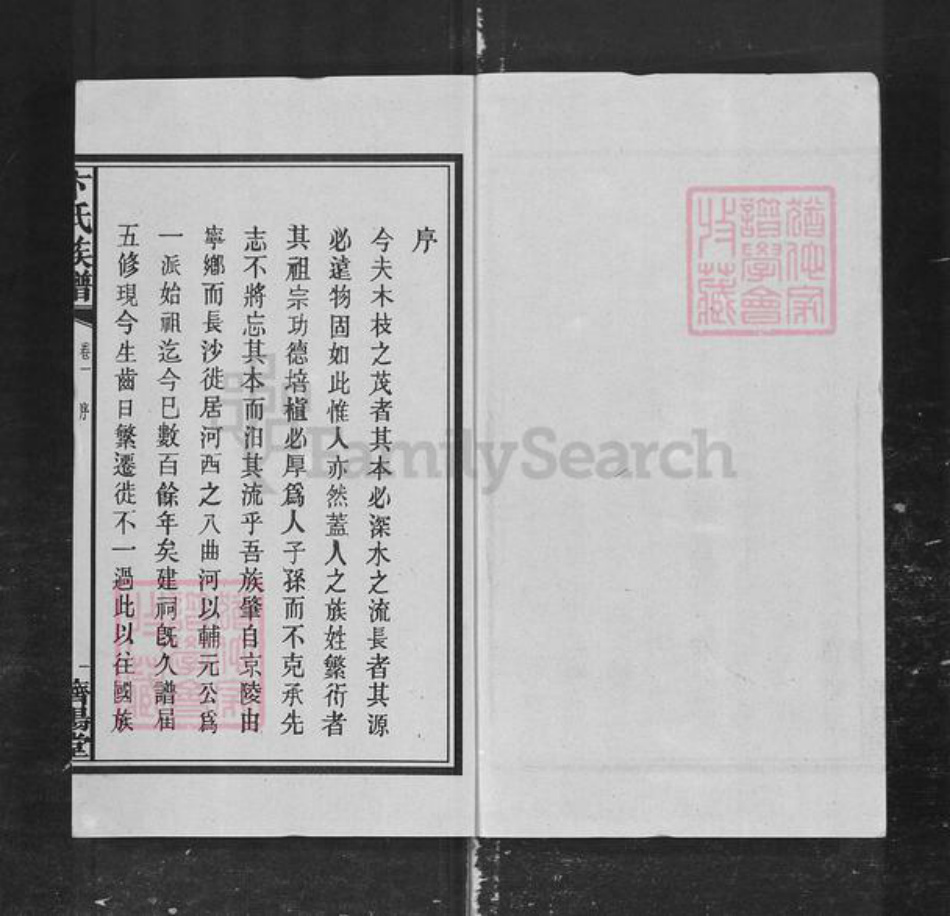 序
今夫木枝之茂者其本必深水之流長者其源
必遠物固如此惟人亦然蓋人之族姓繁衍者
其祖宗功德培植必厚爲人子孫而不克承先
志不將忘其本而汨其流乎吾族肇自京陵由
寧鄉而長沙徙居河西之八曲河以輔元公爲
一派始祖迄今已數百餘年矣建祠旣久譜届
五修現今生齒日繁遷徙不一過此以往國族
卞氏族譜
卷一
序
一
濟陽堂
FamilySearch